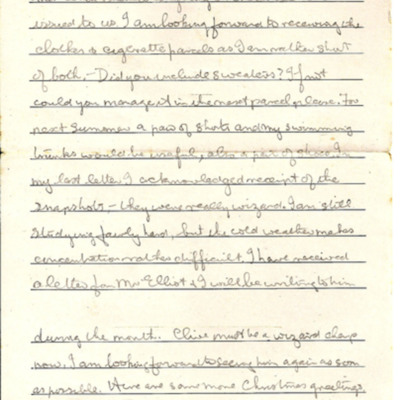 issued to us I am looking forward to receiving the
clothes & cigarette parcels as I am rather short
of both, - Did you include sweaters? If not
could you manage it in the next parcel please. For
next summer a pair of shorts and my swimming
trunks would be useful, also a pair of
my last letter I acknowledged receipt of the
snapshots, - they were really wizard. I am still
studying fairly hard, but the cold weather makes
concentration rather difficult. I have received
a letter from Mr Elliot & I will be writing to him
during the month. Clive must be a wizard chap
now. I am looking forward to seeing him again as soon
as possible. Here are some more Christmas greetings